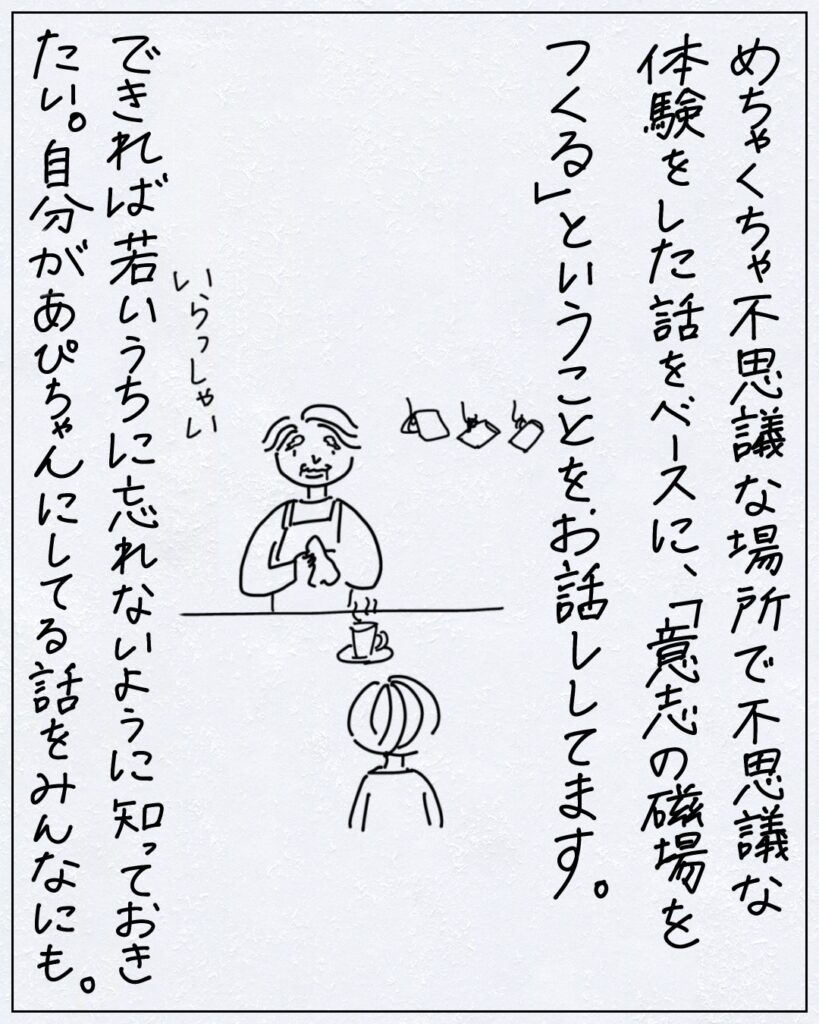 めちゃくちゃ不思議な場所で不思議な
体験をした話をベースに、「意志の磁場を
つくる」ということを、お話ししてます。
いらっしゃい
できれば若いうちに忘れないように知っておき
たい。自分があぴちゃんにしてる話をみんなにも。